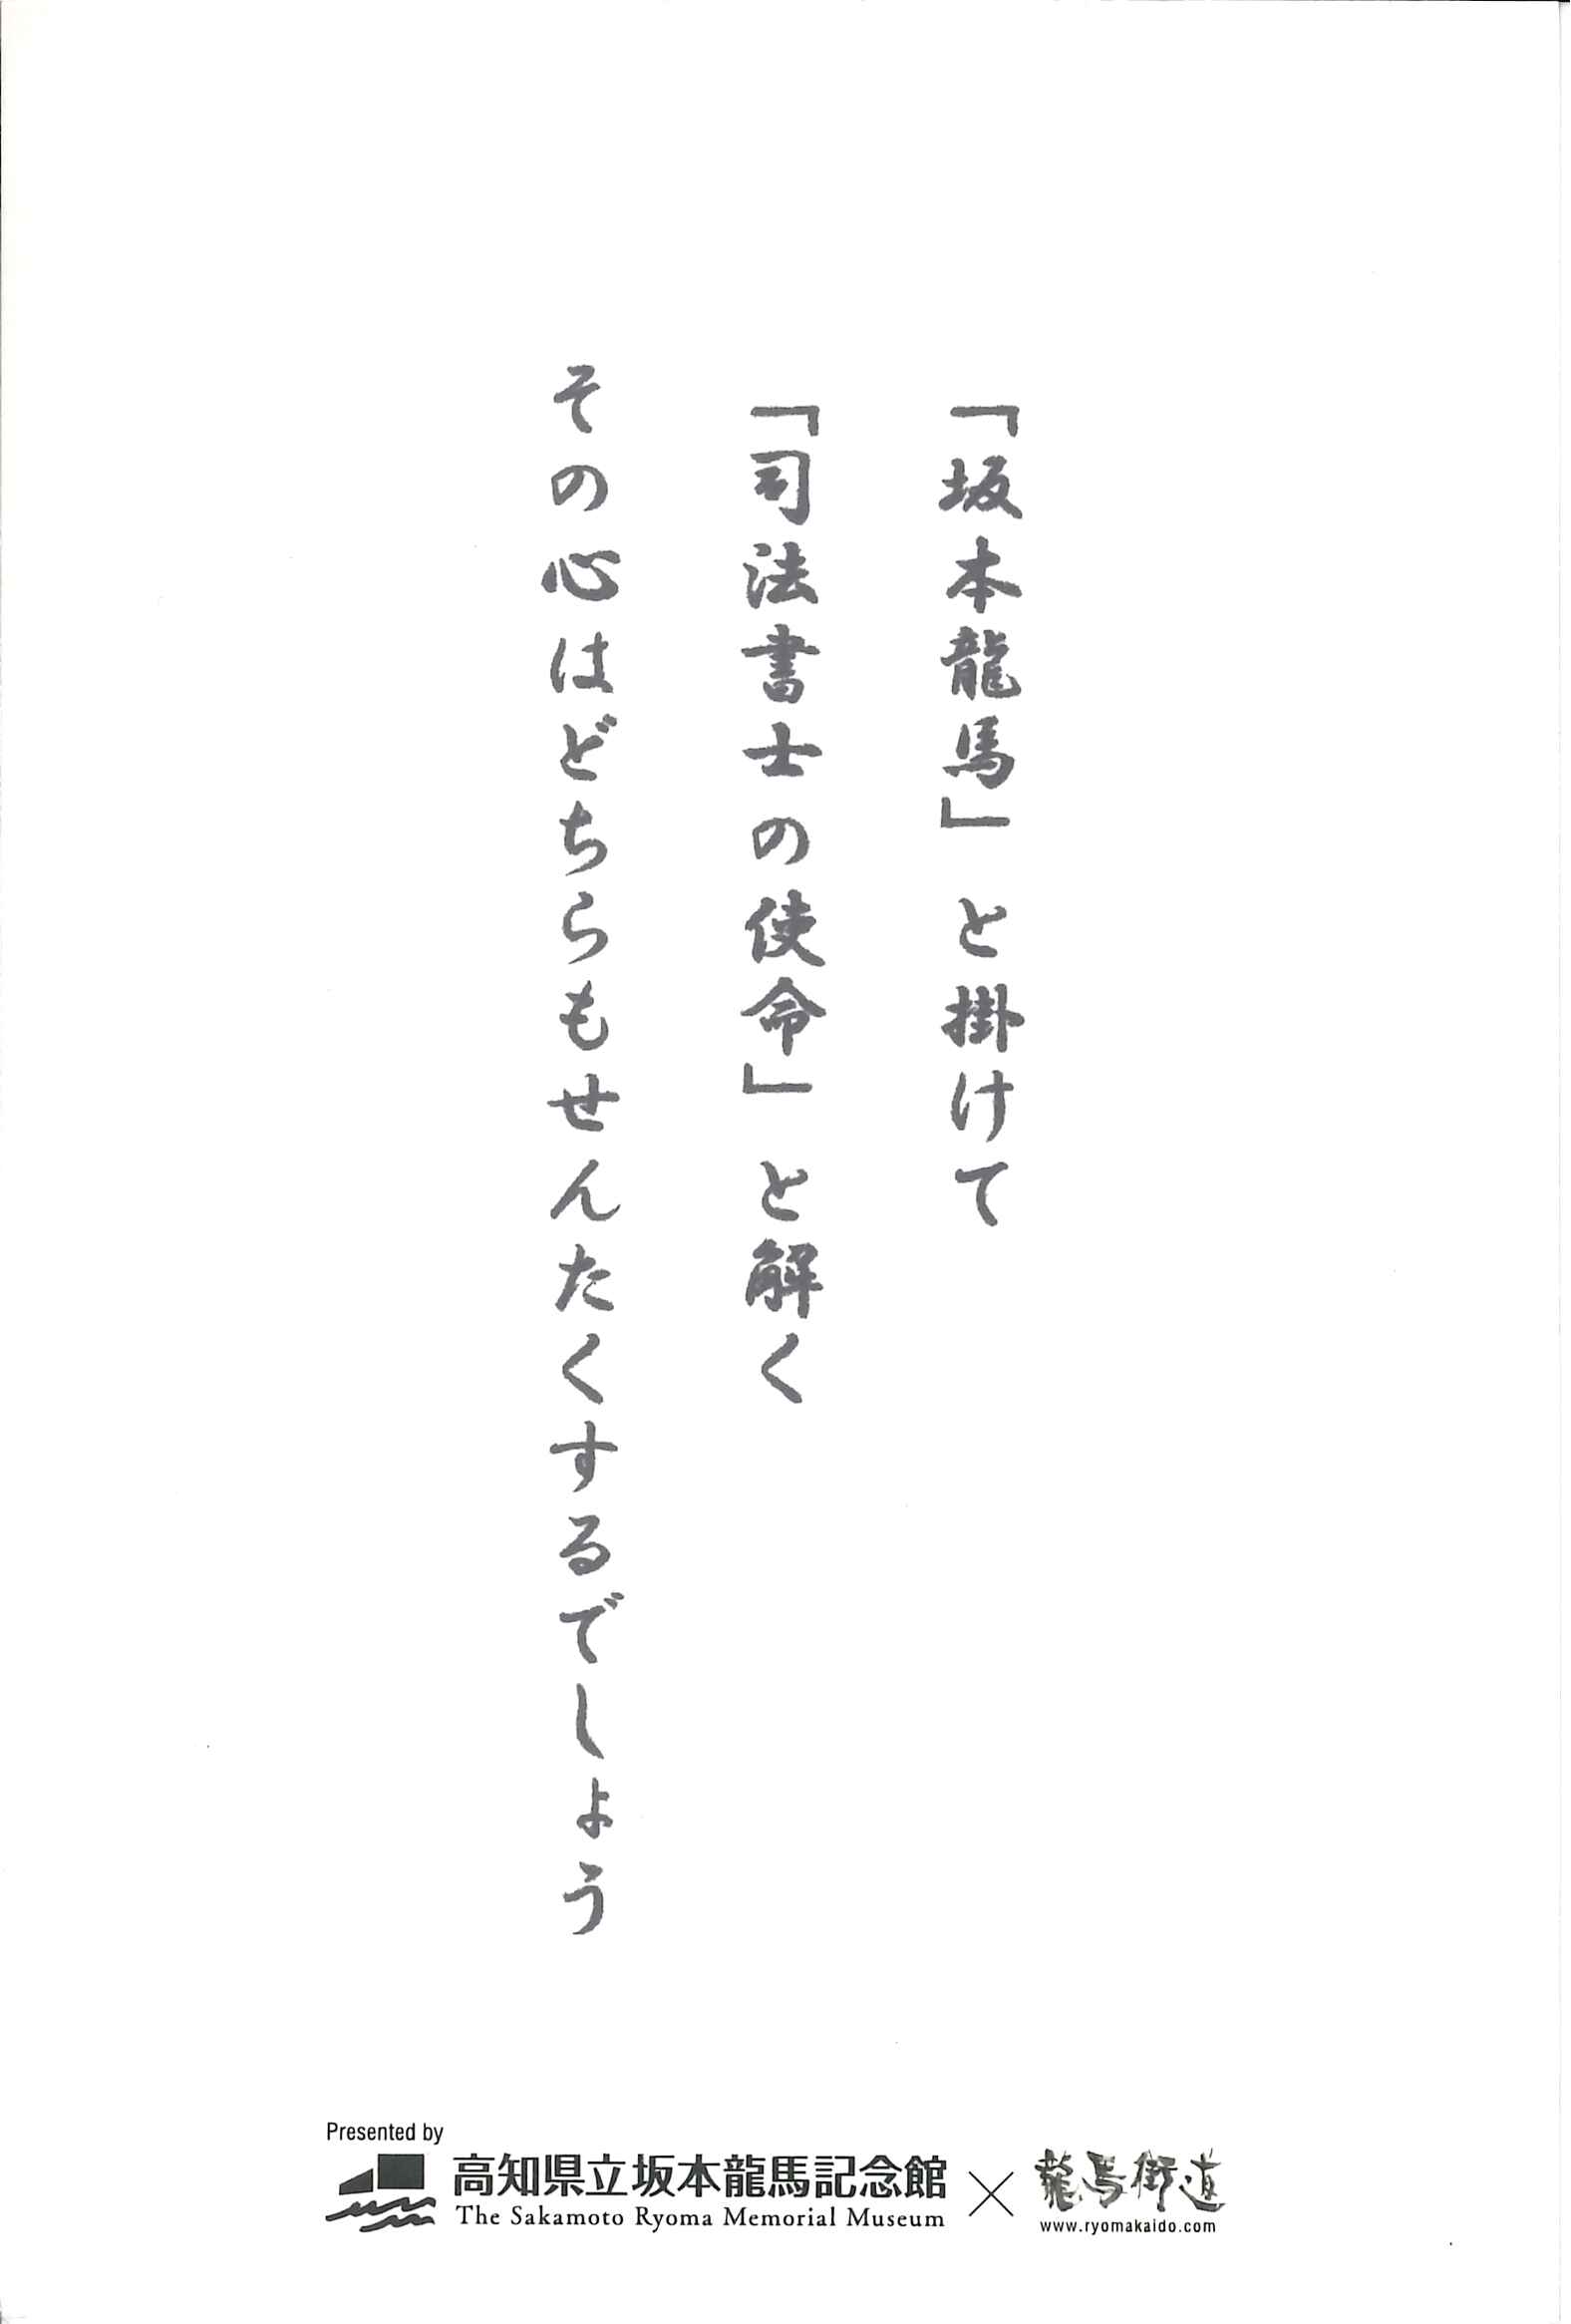 「坂本龍馬」と掛けて
「司法書士の使命」と解く
その心はどちらもせんたくするでしょう
Presented by
高知県立坂本龍馬記念館
The Sakamoto Ryoma Memorial Museum
×
龍馬街道
www.ryomakaido.com